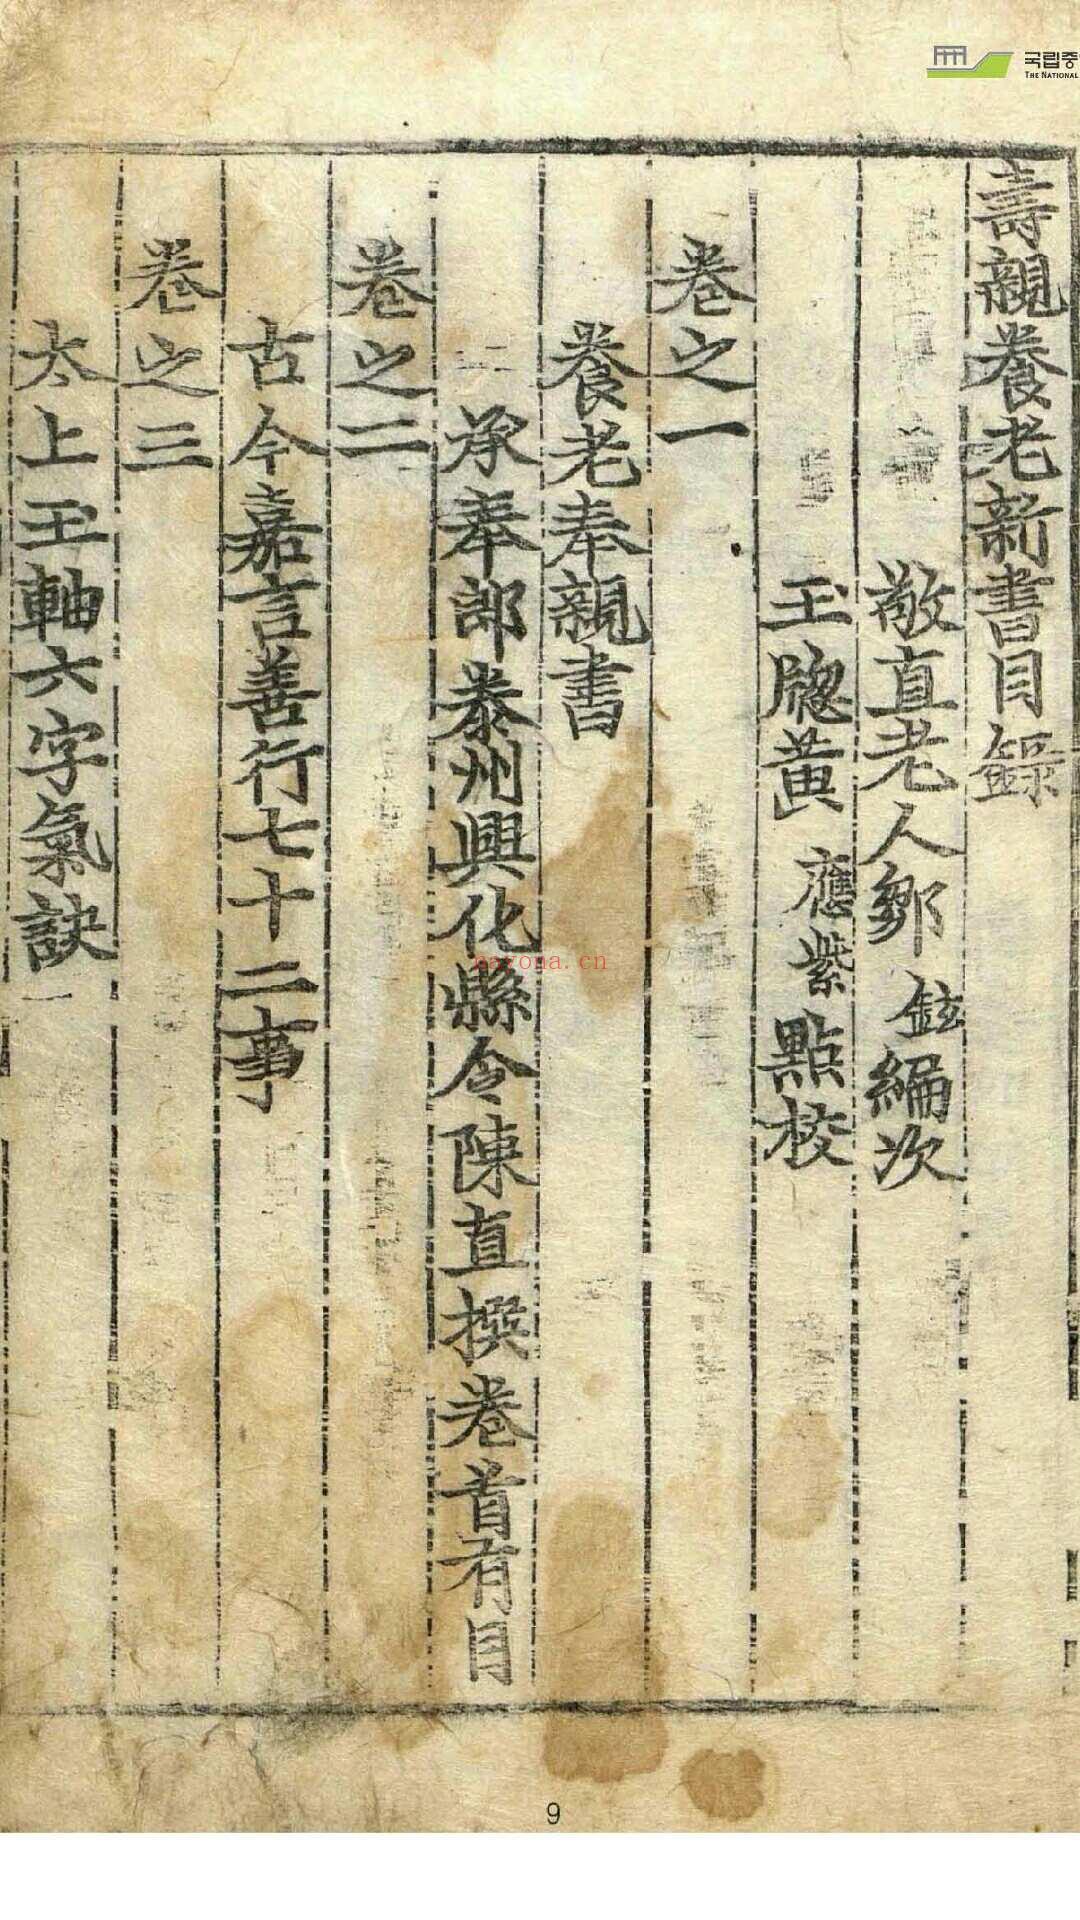 국립중
THE NATIONAL
壽親養老新書目錄
敬直老人鄒 鉉編次
玉牕黃 應紫 點校
卷之一
養老奉親書
承奉郎泰州興化縣令陳直撰卷首有目
卷之二
古今嘉言善行七十二事
卷之三
太上玉軸六字氣訣
nayona.cn
9